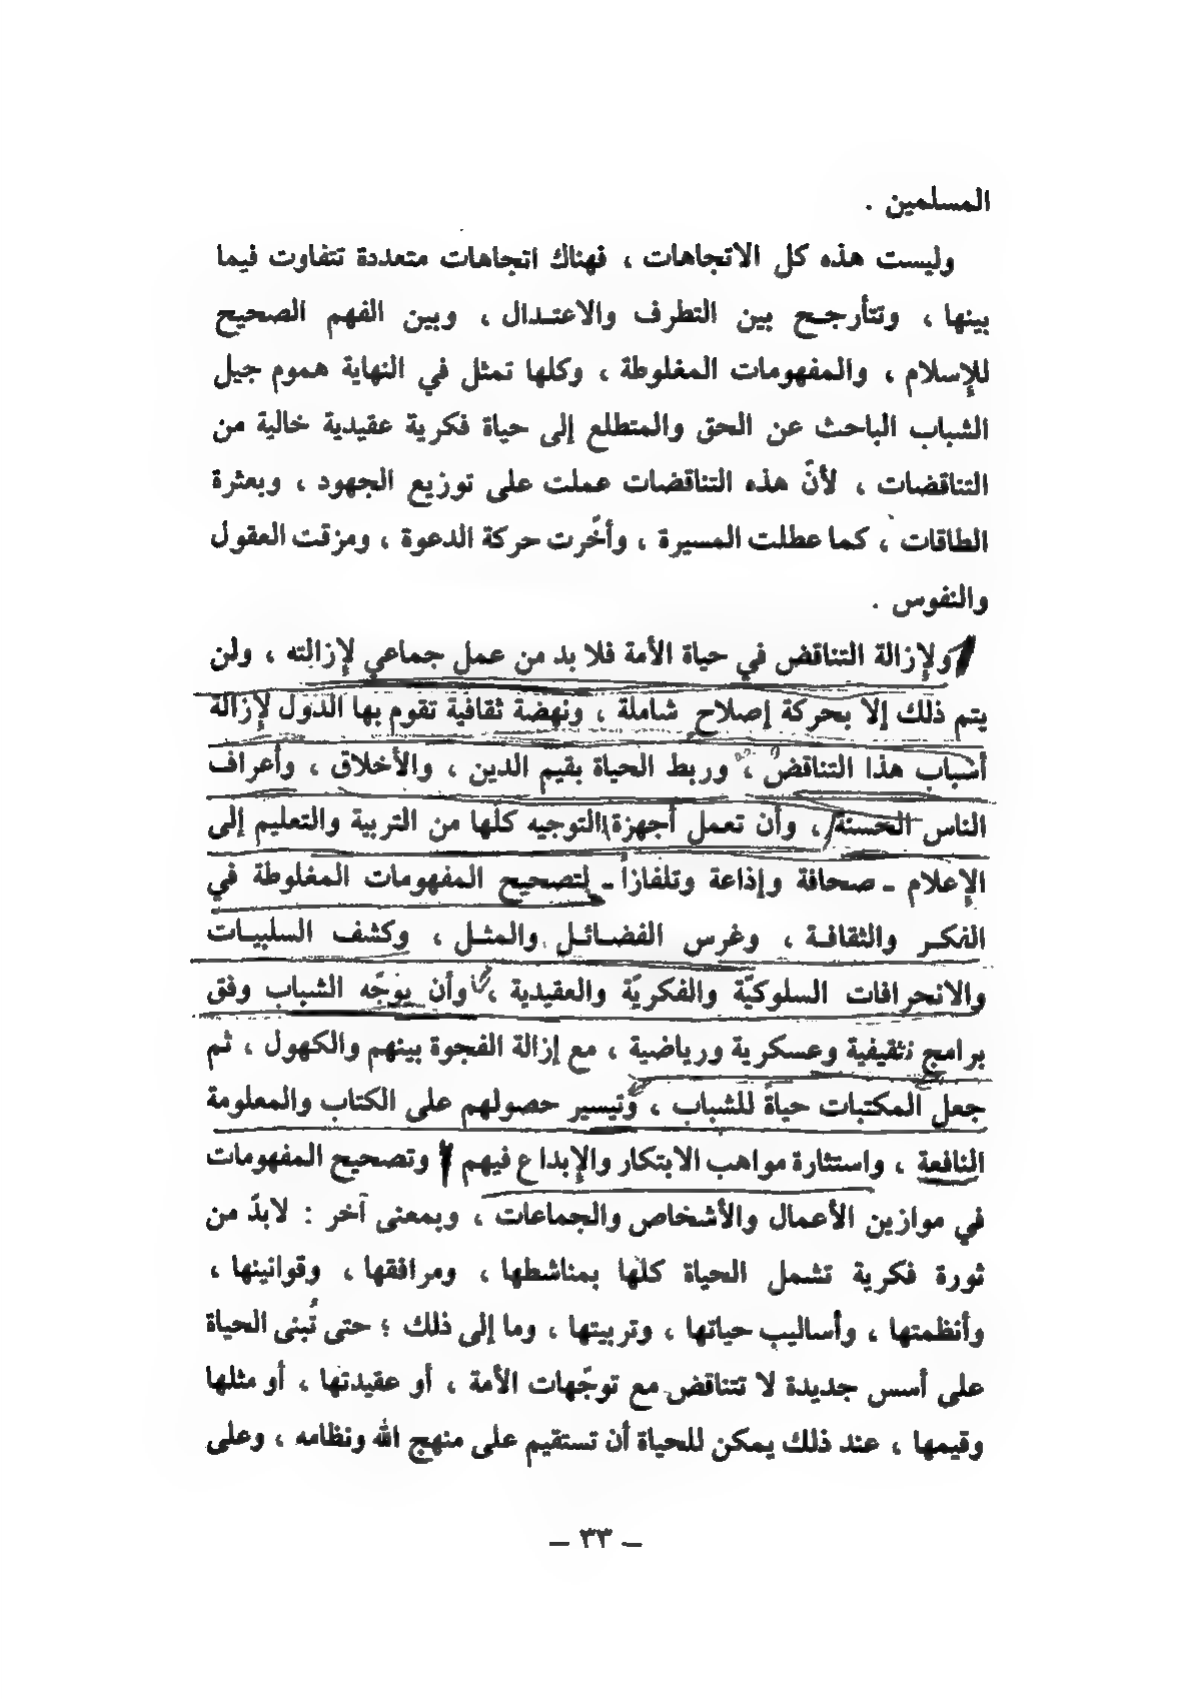 المسلمين .
وليست هذه كل الاتجاهات ، فهناك اتجاهات متعددة تتفاوت فيما
بينها ، وتتأرجـح بين التطرف والاعتـدال ، وبين الفهم الصحيح
للإسلام ، والمفهومات المغلوطة ، وكلها تمثل في النهاية هموم جيل
الشباب الباحث عن الحق والمتطلع إلى حياة فكرية عقيدية خالية من
التناقضات ، لأنّ هذه التناقضات عملت على توزيع الجهود ، وبعثرة
الطاقات ، كما عطلت المسيرة ، وأخّرت حركة الدعوة ، ومزقت العقول
والنفوس .
ولإزالة التناقض في حياة الأمة فلا بد من عمل جماعي لإزالته ، ولن
يتم ذلك إلا بحركة إصلاح شاملة ، ونهضة ثقافية تقوم بها الدول لإزالة
أسباب هذا التناقض ، وربط الحياة بقيم الدين ، والأخلاق ، وأعراف
الناس الحسنة ، وأن تعمل أجهزة التوجيه كلها من التربية والتعليم إلى
الإعلام ـ صحافة وإذاعة وتلفازاً ـ لتصحيح المفهومات المغلوطة في
الفكـر والثقافـة ، وغرس الفضـائـل والمثـل ، وكشف السلبيـات
والانحرافات السلوكيّة والفكريّة والعقيدية ، وأن يوجّه الشباب وفق
برامج تثقيفية وعسكرية ورياضية ، مع إزالة الفجوة بينهم والكهول ، ثم
جعل المكتبات حياةً للشباب ، وتيسير حصولهم على الكتاب والمعلومة
النافعة ، واستثارة مواهب الابتكار والإبداع فيهم وتصحيح المفهومات
في موازين الأعمال والأشخاص والجماعات ، وبمعنى آخر : لابدّ من
ثورة فكرية تشمل الحياة كلها بمناشطها ، ومرافقها ، وقوانينها ،
وأنظمتها ، وأساليب حياتها ، وتربيتها ، وما إلى ذلك ؛ حتى تُبنى الحياة
على أسس جديدة لا تتناقض مع توجّهات الأمة ، أو عقيدتها ، أو مثلها
وقيمها ، عند ذلك يمكن للحياة أن تستقيم على منهج الله ونظامه ، وعلى
ـ ٣٣ ـ